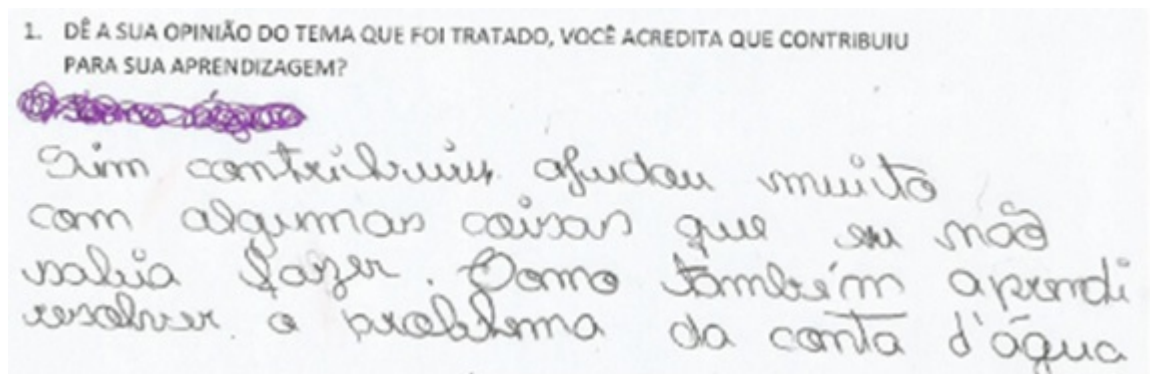 1. DÊ A SUA OPINIÃO DO TEMA QUE FOI TRATADO, VOCÊ ACREDITA QUE CONTRIBUIU
PARA SUA APRENDIZAGEM?
Sim contribuiu ajudou muito
com algumas coisas que eu não
sabia fazer. Como também aprendi
resolver o problema da conta d'água